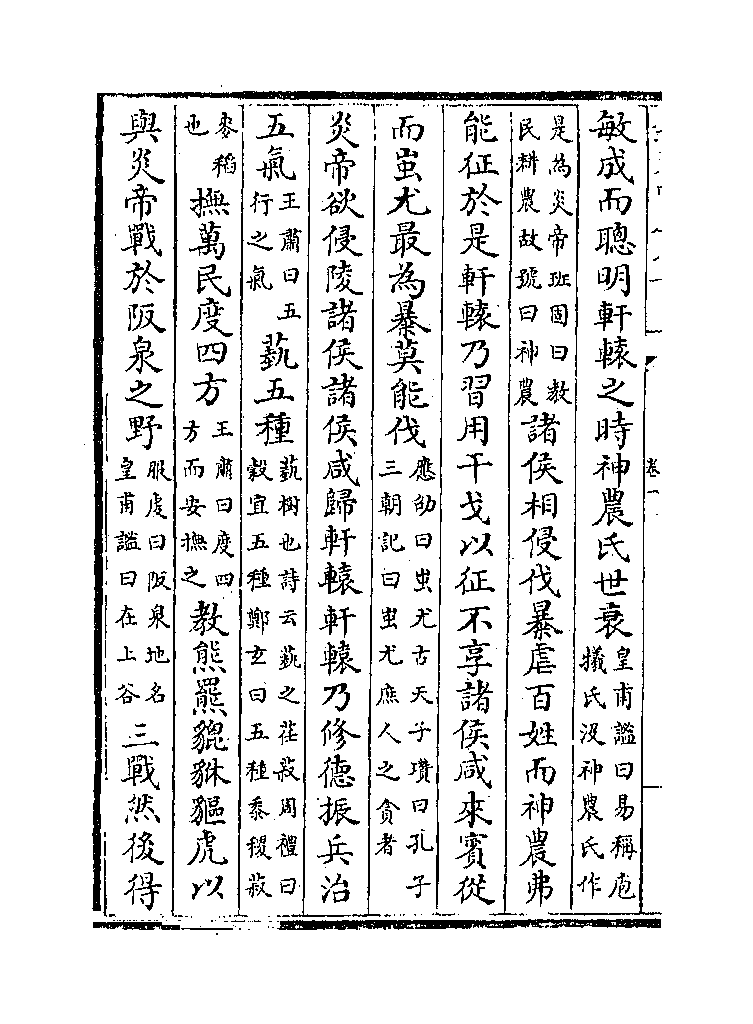 卷一
敏成而聰明軒轅之時神農氏世衰皇甫謐曰易稱庖犧氏沒神農氏作
是為炎帝班固曰教民耕農故號曰神農諸侯相侵伐暴虐百姓而神農弗
能征於是軒轅乃習用干戈以征不享諸侯咸來賓從
而蚩尤最為暴莫能伐應劭曰蚩尤古天子瓚曰孔子三朝記曰蚩尤庶人之貪者
炎帝欲侵陵諸侯諸侯咸歸軒轅軒轅乃修德振兵治
五氣王肅曰五行之氣蓺五種蓺樹也詩云蓺之荏菽周禮曰穀宜五種鄭玄曰五種黍稷菽
麥稻也撫萬民度四方王肅曰度四方而安撫之教熊羆貔貅貙虎以
與炎帝戰於阪泉之野服虔曰阪泉地名皇甫謐曰在上谷三戰然後得